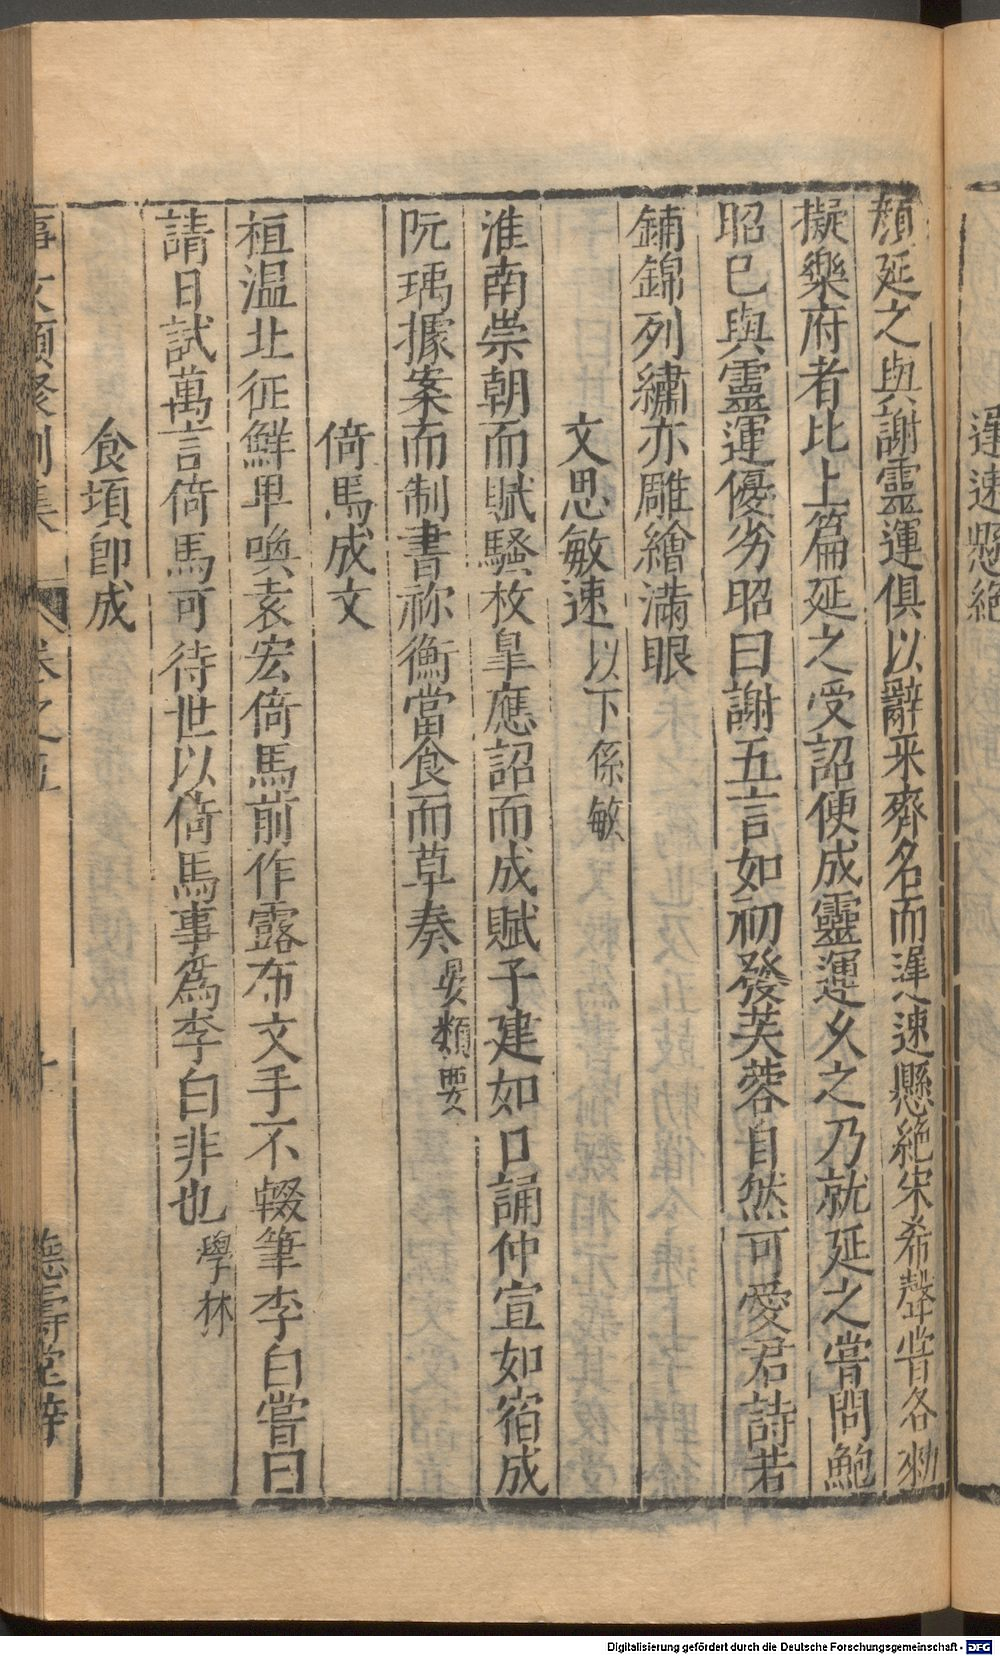 遲速懸絶
顔延之與謝靈運俱以辭采齊名而遲速懸絶宋希聲嘗各勑
擬樂府者比上篇延之受詔便成靈運乆之乃就延之嘗問鮑
昭已與靈運優劣昭曰謝五言如初發芙蓉自然可愛君詩若
鋪錦列繡亦雕繪滿眼
文思敏速 以下係敏
淮南崇朝而賦騷枚臯應詔而成賦子建如口誦仲宣如宿成
阮瑀據案而制書祢衡當食而草奏 晏類要
倚馬成文
桓温北征鮮卑喚袁宏倚馬前作露布文手不輟筆李白嘗曰
請日試萬言倚馬可待世以倚馬事爲李白非也 學林
食頃即成
事文類聚别集 卷之五 十 德壽堂梓
Digitalisierung gefördert durch die Deutsche Forschungsgemeinschaft - DFG